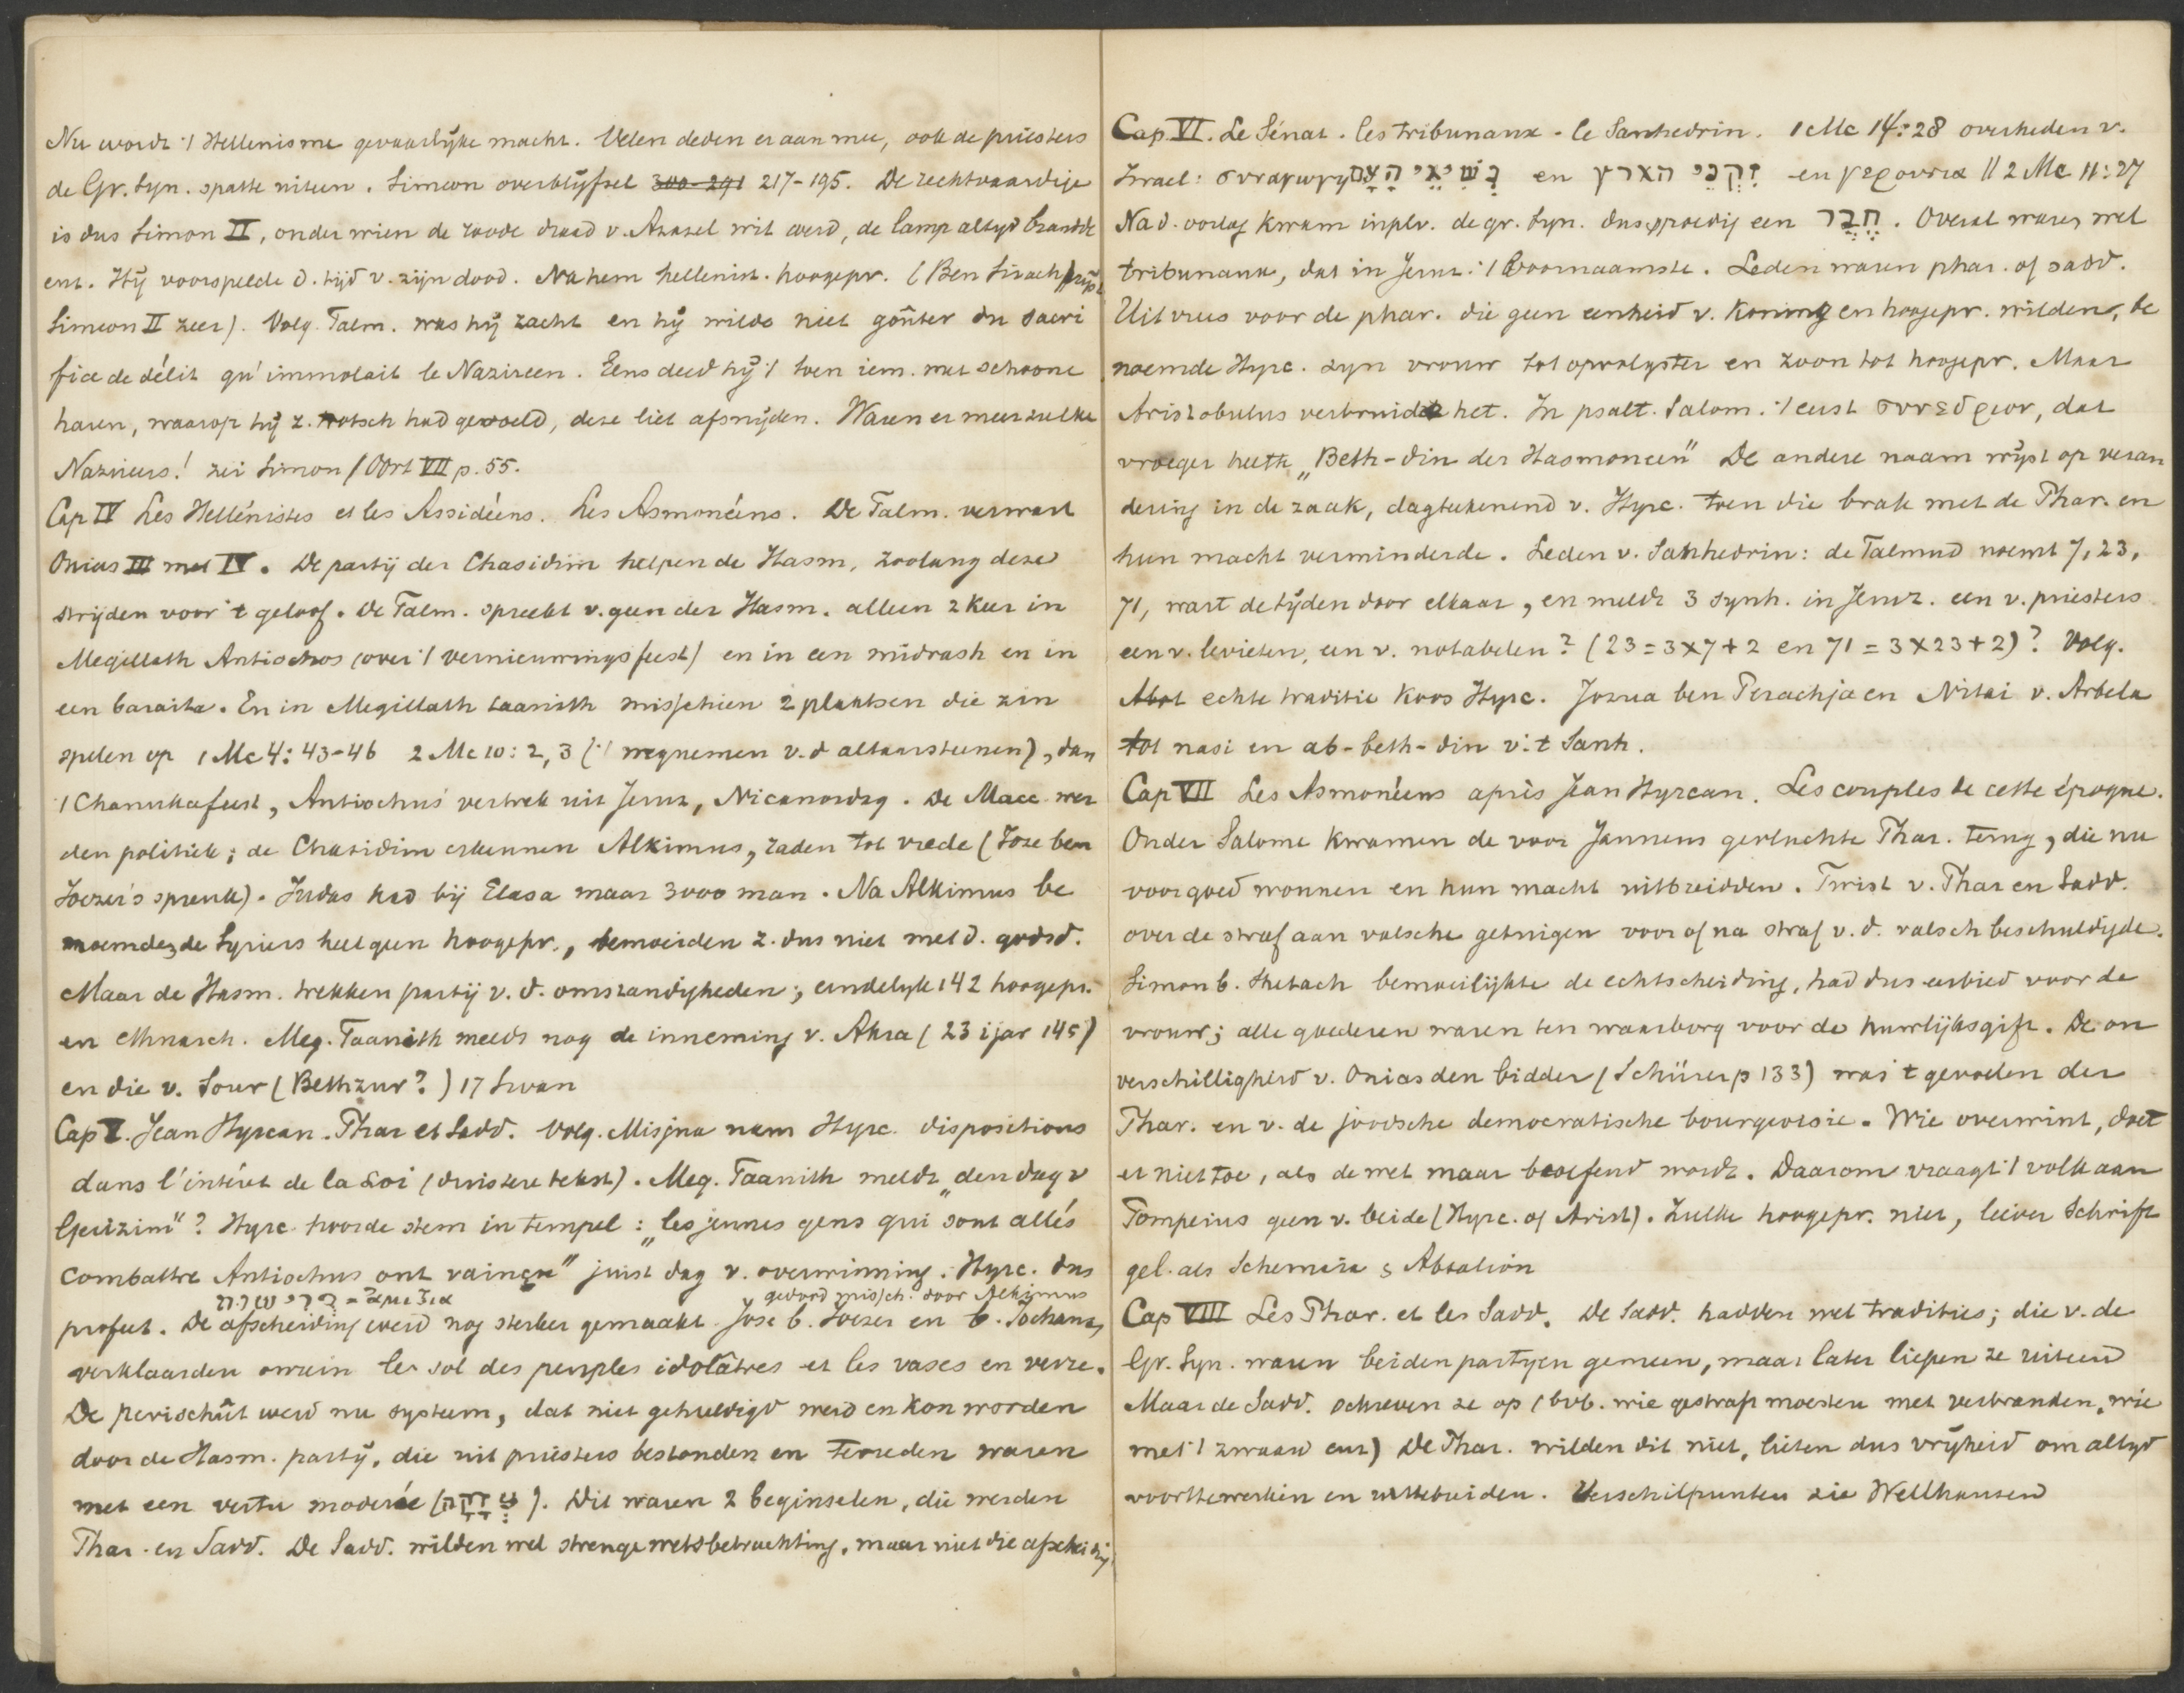 Nu wordt 't Hellenisme gevaarlyke macht. Velen deden er aan mee, ook de priesters
de Gr. Syn. spatte uiteen. Simeon overblyfsel 300-291 217-195. De rechtvaardige
is dus Simon II, onder wien de roode draad v. Azazel wit werd, de lamp altyd brandde
enz. Hij voorspelde d. tijd v. zijn dood. Na hem hellenist. hoogepr. (Ben Sirach prijst
Simeon II zeer). Volg. Talm. was hij zacht en hij wilde niet goûter du sacri
fice de délit qu' immolait le Nazireen. Eens deed hij 't toen iem. met schoone
haren, waarop hij z. trotsch had gevoeld, deze liet afsnijden. Waren er meer zulke
Nazireers! zei Simon (Oort VII p. 55.
Cap IV Les Hellénistes et les Assidéens. Les Asmonéens. De Talm. verwart
Onias III met IV. De partij der Chasidim helpen de Hasm, zoolang deze
strijden voor 't geloof. De Talm. spreekt v. geen der Hasm. alleen 2 keer in
Megillath Antiochos (over 't vernieuwingsfeest) en in een midrash en in
een baraita. En in Megillath taanith misschien 2 plaatsen die zin
spelen op 1 Mc 4: 43-46 2 Mc 10: 2, 3 ('t wegnemen v. d altaarsteenen), dan
't Chanukafeest, Antiochus' vertrek uit Jeruz, Nicanordag. De Macc. wer
den politiek; de Chasidim erkennen Alkimus, raden tot vrede (Joze ben
Joezer's spreuk). Judas had bij Elasa maar 3000 man. Na Alkimus be
noemden de Syriers heel geen hoogepr., bemoeiden z. dus niet met d. godsd.
Maar de Hasm. trekken partij v. d. omstandigheden; eindelyk 142 hoogepr.
en ethnarch. Meg. Taanith meldt nog de inneming v. Akra (23 ijar 145)
en die v. Sour (Bethzur?) 17 Siwan
Cap V. Jean Hyrcan. Phar et Sadd. Volg. Misjna nam Hyrc. dispositions
dans l'intéret de la Loi (duistere tekst). Meg. Taanith meldt "den dag v
Gerizim"? Hyrc. hoorde stem in tempel: "les jeunes gens qui sont allés
combattre Antiochus ont vaincu" juist dag v. overwinning. Hyrc. dus
פרישות gedood missch. door Alkimus
profeet. De afscheiding werd nog sterker gemaakt. Jose b. Joezer en b. Jochanan
verklaarden onrein le sol des peuples idolâtres et les vases en verre.
De perischût werd nu systeem, dat niet gehuldigd werd en kon worden
door de Hasm. partij, die uit priesters bestonden en tevreden waren
met een vertu moderée (צְדָקָה). Dit waren 2 beginselen, die werden
Phar. en Sadd. De Sadd. wilden wel strenge wetsbetrachting, maar niet die afscheiding
Cap VI. Le Sénat. les tribunaux. le Sanhedrin. 1 Mc 14:28 overheden v.
Israel: συναγωγη נְשִׂיאֵי הָעָם en זִקְנֵי הארץ en γερουσια || 2 Mc 11:27
Na d. oorlog kwam inplv. de gr. Syn. dus spoedig een חֶבֶר. Overal waren wel
tribunaux, dat in Jeruz. 't voornaamste. Leden waren phar. of sadd.
Uit vrees voor de phar. die geen eenheid v. koning en hoogepr. wilden, be
noemde Hyrc. zyn vrouw tot opvolgster en zoon tot hoogepr. Maar
Aristobulus verbruide het. In psalt. Salom. 't eerst συνεδριον, dat
vroeger heette "Beth-din der Hasmoneen" De andere naam wijst op veran
dering in de zaak, dagteekenend v. Hyrc. toen die brak met de Phar. en
hun macht verminderde. Leden v. Sanhedrin: de Talmud noemt 7, 23,
71, wart de tijden door elkaar, en meldt 3 synh. in Jeruz. een v. priesters
een v. levieten, een v. notabelen? (23 = 3x7+2 en 71 = 3x23+2)? Volg.
Abot echte traditie koos Hyrc. Jozua ben Perachja en Nitai v. Arbela
tot nasi en ab-beth-din v. 't Sanh.
Cap VII Les Asmonéens après Jean Hyrcan. Les couples de cette époque.
Onder Salome kwamen de voor Janneus gevluchte Phar. terug, die nu
voorgoed wonnen en hun macht uitbreidden. Twist v. Phar en Sadd.
over de straf aan valsche getuigen voor of na straf v. d. valsch beschuldigde.
Simon b. Shetach bemoeilijkte de echtscheiding, had dus eerbied voor de
vrouw; alle goederen waren ten waarborg voor de huwlijksgift. De on
verschilligheid v. Onias den bidder (Schürer p 133) was 't gevoelen der
Phar. en v. de joodsche democratische bourgeoisie. Wie overwint, doet
er niet toe, als de wet maar beoefend wordt. Daarom vraagt 't volk aan
Pompeius geen v. beide (Hyrc. of Arist). Zulke hoogepr. niet, liever Schrift
gel. als Schemaia & Abtalion
Cap VIII Les Phar. et les Sadd. De Sadd. hadden wel tradities; die v. de
Gr. Syn. waren beiden partyen gemeen, maar later liepen ze uiteen
Maar de Sadd. schreven ze op (bvb. wie gestraft moesten met verbranden, wie
met 't zwaard enz) De Phar. wilden dit niet, lieten dus vrijheid om altyd
voorttewerken en uittebreiden. Verschilpunten zie Wellhausen